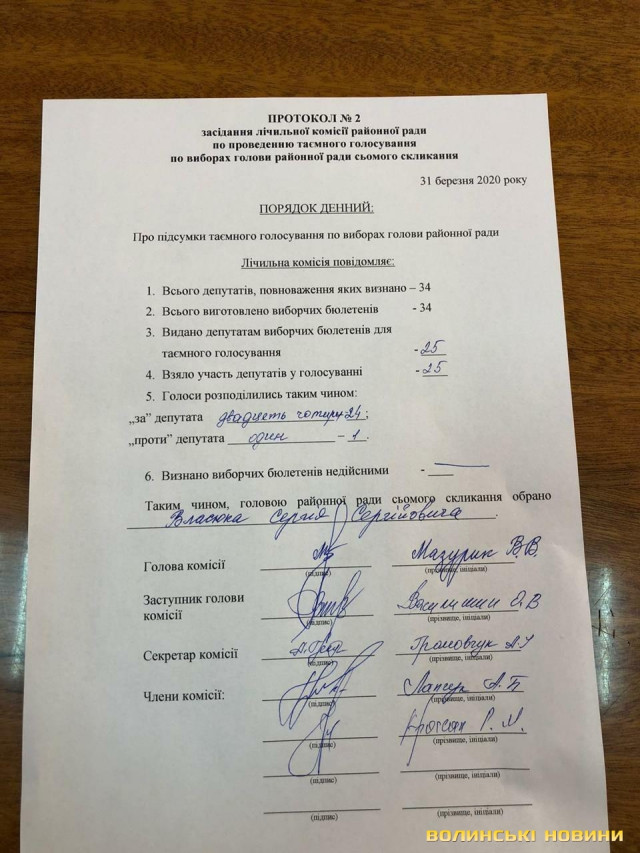 ПРОТОКОЛ № 2
засідання лічильної комісії районної ради
по проведенню таємного голосування
по виборах голови районної ради сьомого скликання
31 березня 2020 року
ПОРЯДОК ДЕННИЙ:
Про підсумки таємного голосування по виборах голови районної ради
Лічильна комісія повідомляє:
1. Всього депутатів, повноваження яких визнано – 34
2. Всього виготовлено виборчих бюлетенів - 34
3. Видано депутатам виборчих бюлетенів для
таємного голосування - 25
4. Взяло участь депутатів у голосуванні - 25
5. Голоси розподілились таким чином:
„за” депутата двадцять чотири 24;
„проти” депутата один – 1.
6. Визнано виборчих бюлетенів недійсними - —
Таким чином, головою районної ради сьомого скликання обрано
Власюка Сергія Сергійовича.
Голова комісії Мазурик В.В.
(підпис) (прізвище, ініціали)
Заступник голови
комісії Василишин О.В
(підпис) (прізвище, ініціали)
Секретар комісії А.У
(підпис) (прізвище, ініціали)
Члени комісії: А.Б
(підпис) (прізвище, ініціали)
Р. М.
(підпис) (прізвище, ініціали)
(підпис) (прізвище, ініціали)
(підпис) (прізвище, ініціали)
ВОЛИНСЬКІ НОВИНИ